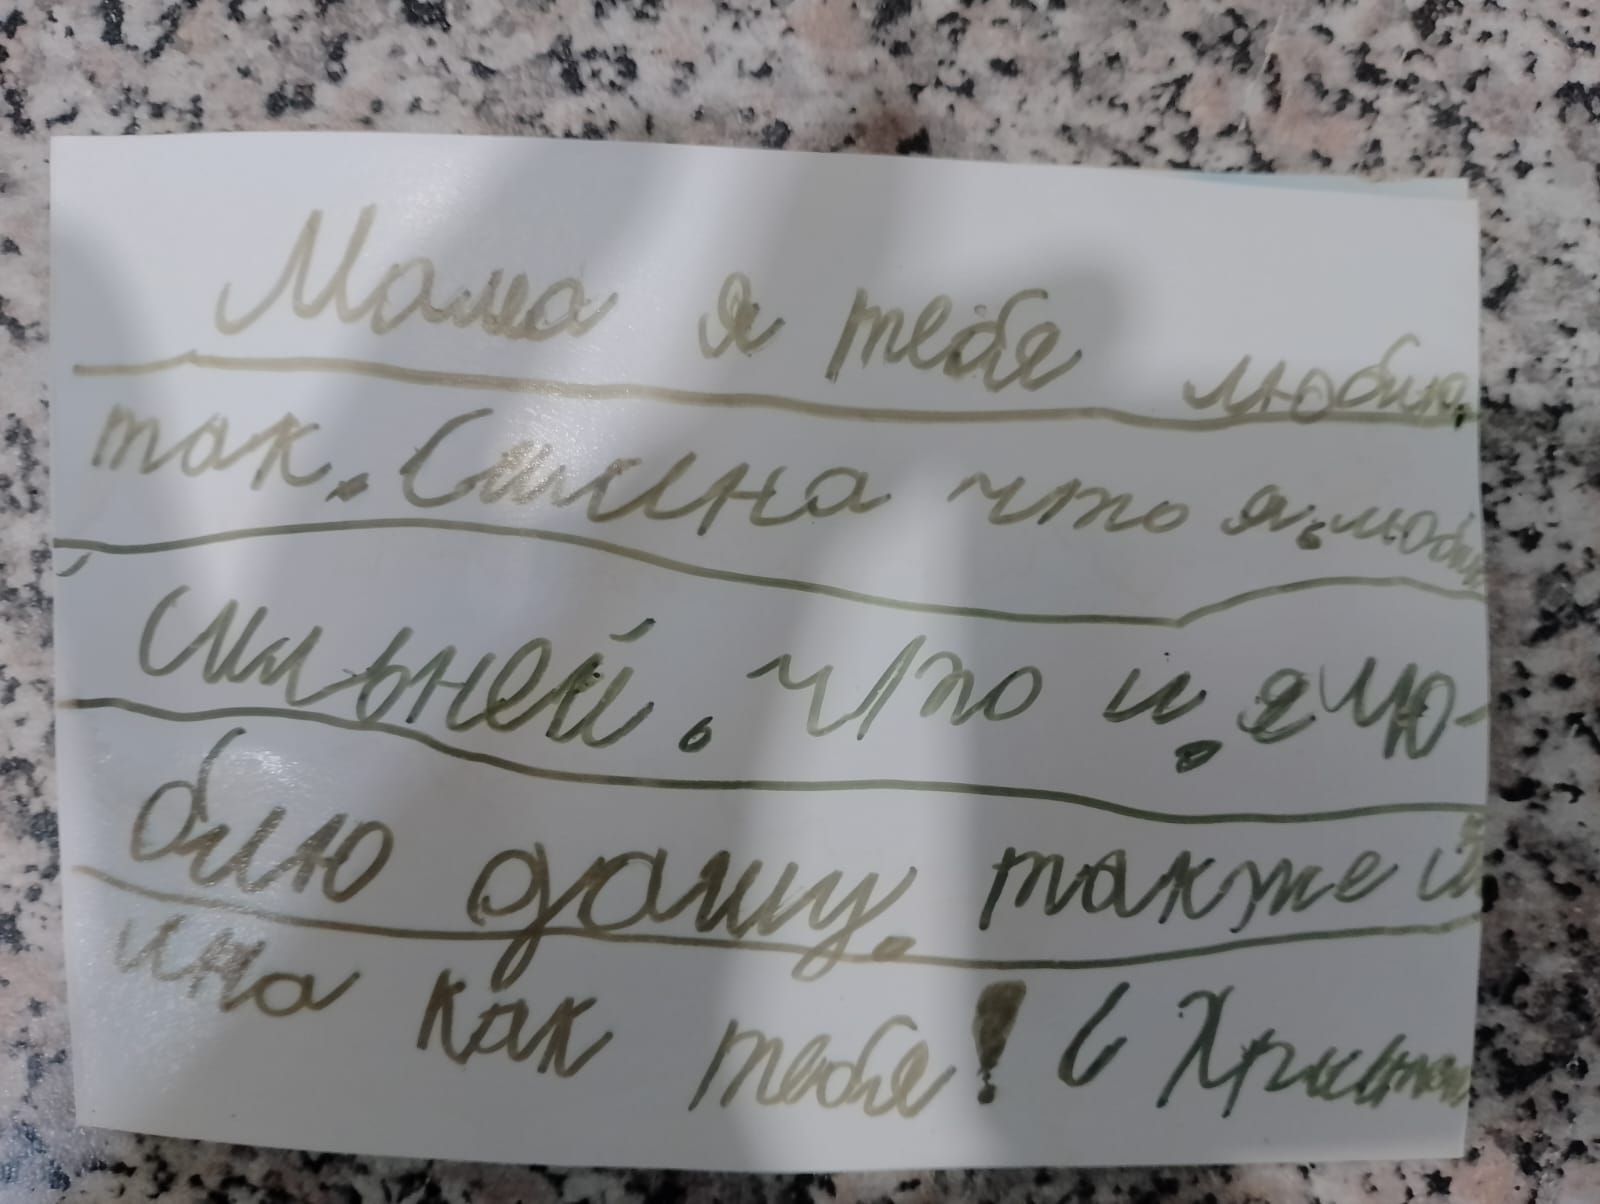 Мама я тебя люблю.
так. Силина что я, люблю
Сильней. что и, я лю-
блю дашу. также и
ина как тебя! С Христом